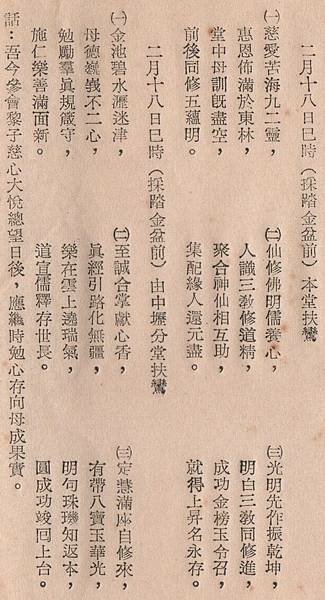 二月十八日巳時(採踏金盆前)本堂扶鸞
㈠慈愛苦海九二靈，
惠恩佈滿於東林，
堂中母訓旣盡空，
前後同修五蘊明。
㈡仙修佛明儒養心，
人識三教修道精，
聚合神仙相互助，
集配緣人還元盡。
㈢光明先作振乾坤，
明白三教同修進，
成功金榜玉令召，
就得上昇名永存。
二月十八日巳時(採踏金盆前)由中壢分堂扶鸞
㈠金池碧水瀝迷津，
母德巍峩不二心，
勉勵羣眞規箴守，
施仁樂善滿面新。
㈡至誠合掌獻心香，
眞經引路化無疆，
樂在雲上遶瑞氣，
道宣儒釋存世長。
㈢定慧滿座自修來，
有帶八寶玉華光，
明句珠璣知返本，
圓成功竣囘上台。
話：吾今參會黎子慈心大悅總望日後，應繼時勉心存向母成果實。